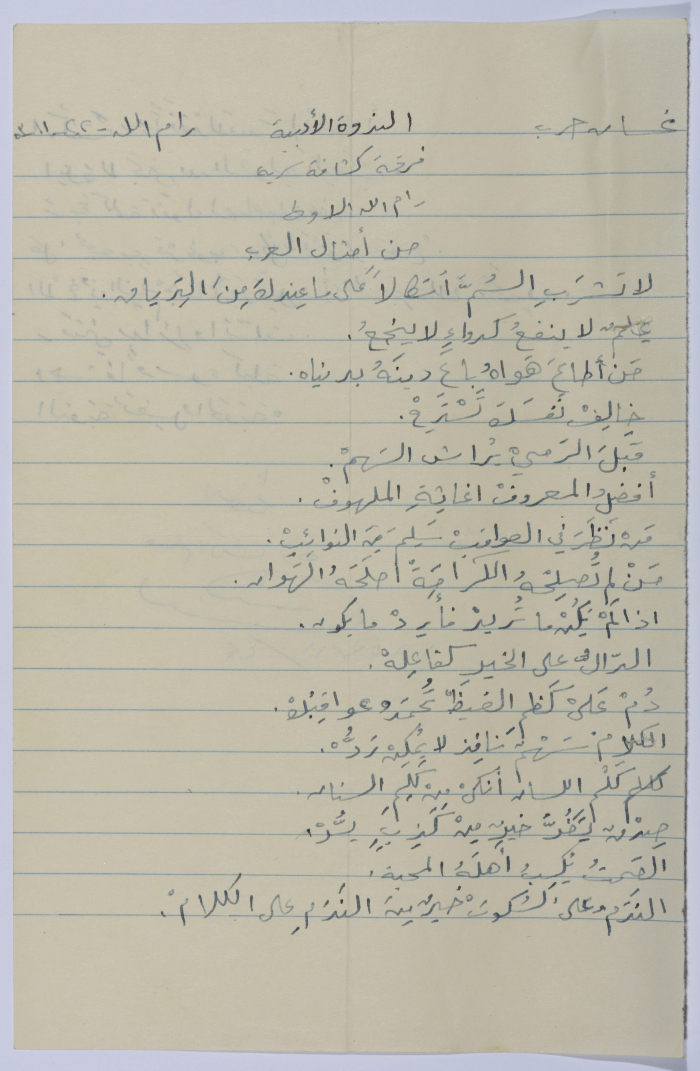 غسان حرب الندوة الأدبية رام الله
فرقة كشافة سرية
رام الله الاولى
من أمثال العرب
لا تشرَبِ السُمَّ اتكالاً على ما عِندكَ مِنَ التِرياق.
علمٌ لا ينفعُ كدواءٍ لا ينجعُ.
مَن أطاعَ هَواهُ باعَ دينَهُ بدنياه.
خالِفْ نَفسَكَ تَسْتَرِحْ.
قَبلَ الرَميْ يُراش السَهمْ.
أفضلُ المعروفْ اغاثةِ الملهوفْ.
مَنْ نَظَرَ في العواقِبْ سَلِمَ مِنَ النوائِبْ.
مَنْ لم تُصلِحْهُ الكرامَةْ اصلَحَهُ الهَوان.
اذا لَمْ يَكُنْ ما تُريدْ فأرِدْ ما يكون.
الدّالُ على الخيرِ كفاعِلِهْ.
دُمْ عَلىْ كَظمِ الغيظْ تُحمَدْ عواقِبُكْ.
الكلامُ سَهْمٌ نافِذ لا يُمْكِنْ رَدُّهْ.
كَلْمُ اللسان أنكىْ مِنْ كَلِمِ السنان.
صِدْقٌ يَضُرُّ خيرٌ مِنْ كَذِبٍ يسُرّ.
الصَمتُ يُكسِبُ أهلَهُ المحبة.
النَدَمُ على السُكوتْ خيرٌ مِنَ النَدَمِ على الكلامْ.